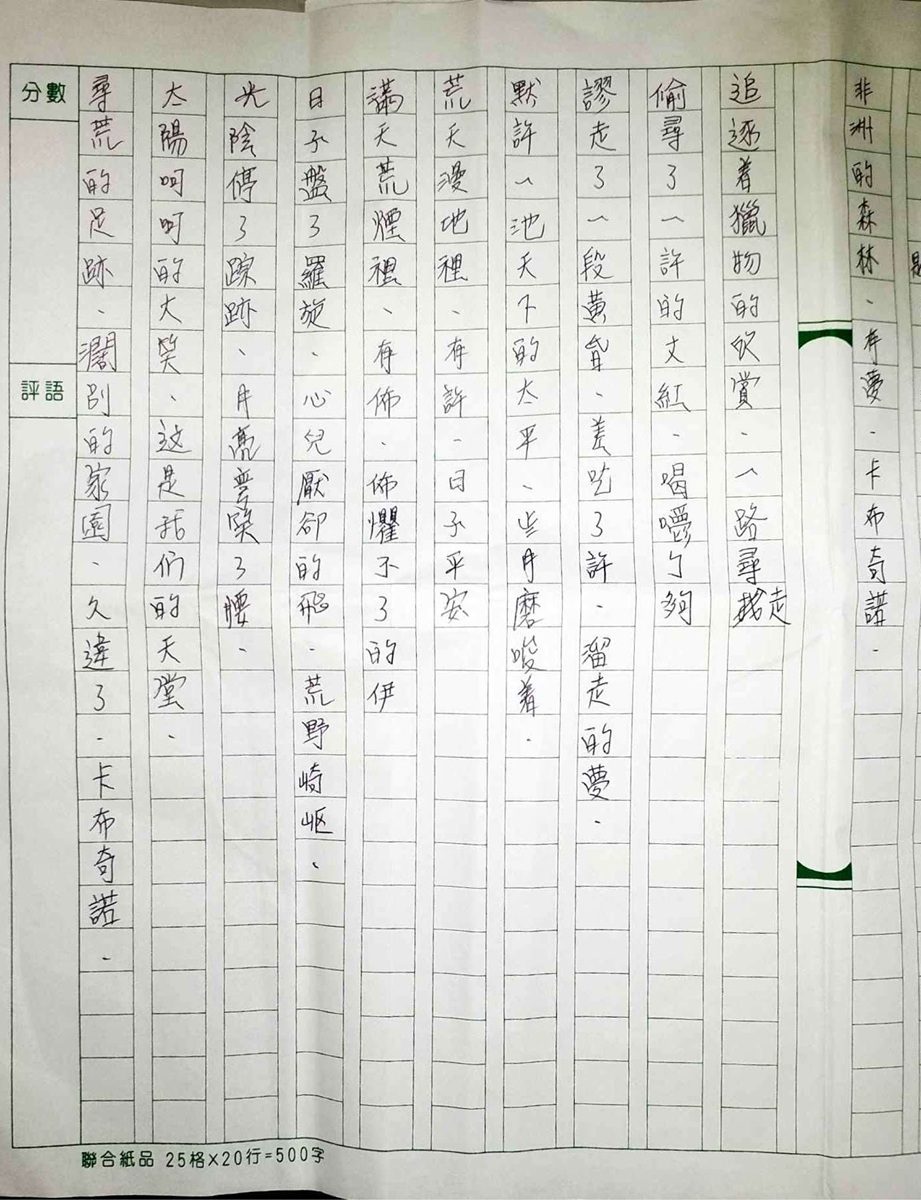 非洲的森林、有夢、卡布奇諾、
追逐着獵物的欣賞、一路尋找走
偷尋了一許的丈紅、喝嚶了夠
謬走了一段黃昏、差吃了許、溜走的夢、
默許一池天下的太平、些月磨唆着、
荒天漫地裡、有許、日子平安
滿天荒煙裡、有佈、佈懼不了的伊
日子盤了羅旋、心兒厭卻的飛、荒野崎岖、
光陰停了蹤跡、月亮彎了腰、
太陽呵呵的大笑、这是我们的天堂、
尋荒的足跡、濶別的家園、久違了、卡布奇諾、
分數
評語
聯合紙品 25格X20行=500字